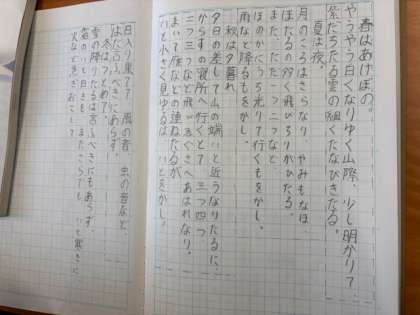 春はあけぼの。
やうやう白くなりゆく山際、少し明かりて、
紫だちたる雲の細くたなびきたる。
夏は夜。
月のころはさらなり、やみもなほ、
ほたるの多く飛びちがひたる。
また、ただ一つ二つなど、
ほのかにうち光りて行くもをかし。
雨など降るもをかし。
秋は夕暮れ
夕日の差して山の端いと近うなりたるに、
からすの寝所へ行くとて 三つ四つ、
二つ三つなど飛び急ぐさへあはれなり。
まいて雁などの連ねたるが、
いと小さく見ゆるは、いとをかし。
日入り果てて、風の音、虫の音など、
はたいふべきにあらず。
冬はつとめて。
雪の降りたるは言ふべきにもあらず、
霜のいと白きも、またさらでも、いと寒きに、
火など急ぎおこして、